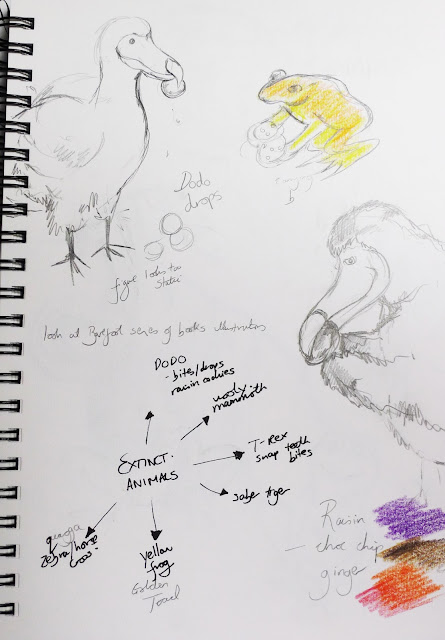 Dodo
drops
figure looks too
static
look at Barefoot series of books illustrations
DODO
- bites/drops
raisin cookies
wooly-
mammoth
T-Rex
snap teeth
bites
EXTINCT-
ANIMALS
saber tiger
quagga
zebra/horse
cross-
yellow
frog
Golden
Toad
Raisin
- choc chip
ginger